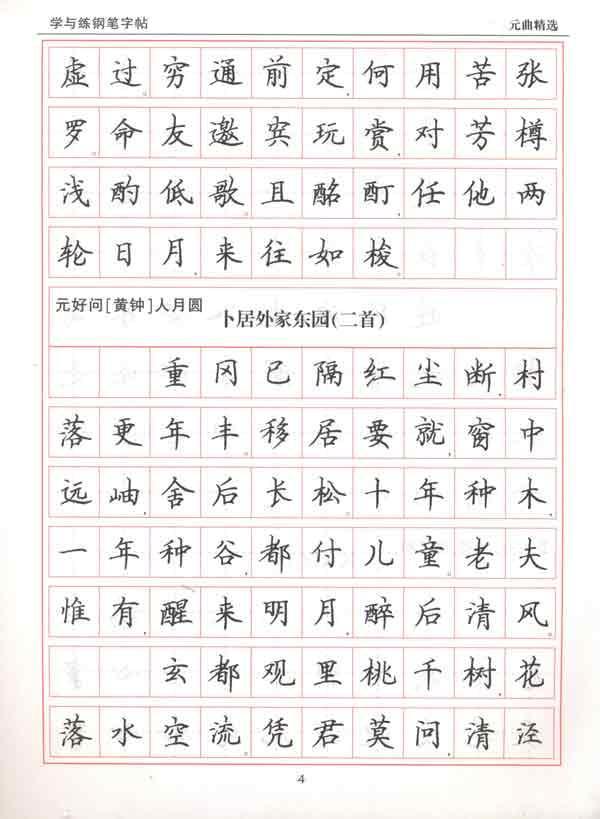 学与练钢笔字帖 元曲精选
虚过。穷通前定，何用苦张
罗。命友邀宾玩赏，对芳樽
浅酌低歌。且酩酊，任他两
轮日月，来往如梭。
元好问[黄钟]人月圆
卜居外家东园(二首)
重冈已隔红尘断，村
落更年丰。移居要就，窗中
远岫，舍后长松。十年种木，
一年种谷，都付儿童。老夫
惟有，醒来明月，醉后清风。
玄都观里桃千树，花
落水空流。凭君莫问，清泾
4